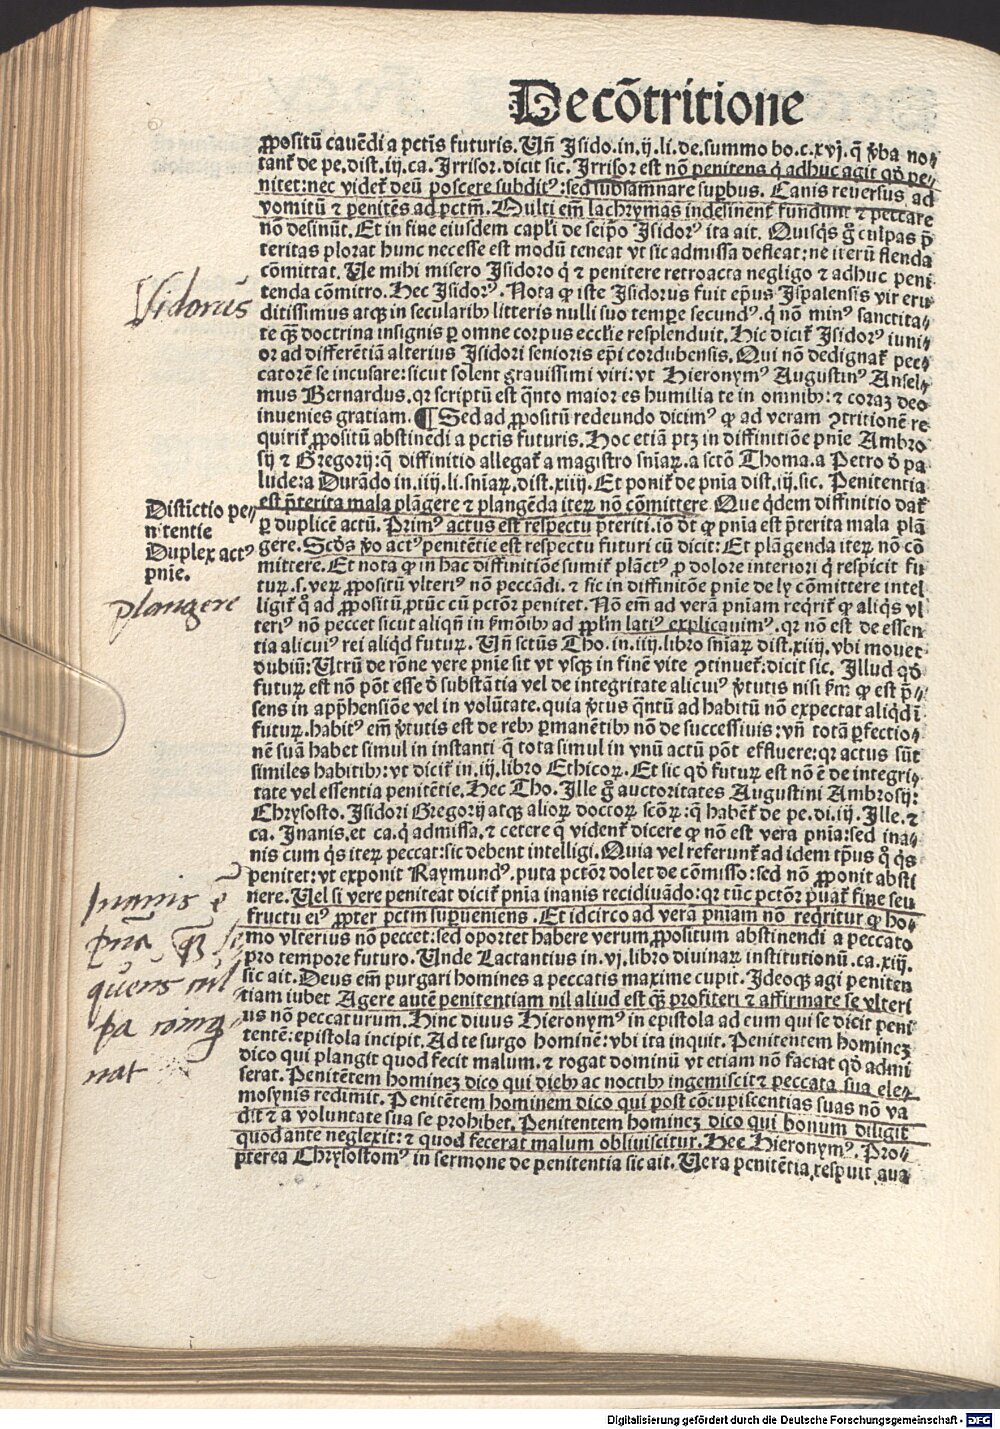 De cõtritione
ꝓpositũ cauẽdi a pctĩs futuris. Vñ Isido. in. ij. li. de. summo bo. c. xvj. q̃ ꝟba no⸗
tant᷑ de pe. dist. iij. ca. Irrisor. dicit sic. Irrisor est nõ penitens q̇ adhuc agit qđ pe⸗
nitet: nec videt᷑ deũ poscere subditꝰ: sed subsannare suꝑbus. Canis reuersus ad
vomitũ ⁊ penitẽs ad pctm̃. Multi em̃ lachrymas indesinent᷑ fundunt ⁊ peccare
nõ desinũt. Et in fine eiusdem capl̃i de seip̃o Isidorꝰ ita ait. Quisq̇s g̊ culpas p̃
teritas plorat hunc necesse est modũ teneat vt sic admissa defleat: ne iterũ flenda
cõmittat. Ve mihi misero Isidoro q̇ ⁊ penitere retroacta negligo ⁊ adhuc peni
tenda cõmitto. Hec Isidorꝰ. Nota ꝙ iste Isidorus fuit ep̃us Ispalensis vir eru⸗
Isidorus
ditissimus atqꝫ in secularibꝰ litteris nulli suo tempe secundꝰ. q̇ nõ minꝰ sanctita⸗
te qꝫ̃ doctrina insignis ꝑ omne corpus eccl̃ie resplenduit. Hic dicit᷑ Isidorꝰ iuni⸗
or ad differẽtiã alterius Isidori senioris ep̃i cordubensis. Qui nõ dedignat᷑ pec⸗
catorẽ se incusare: sicut solent grauissimi viri: vt Hieronymꝰ Augustinꝰ Ansel⸗
mus Bernardus. qr scriptũ est q̃nto maior es humilia te in omnibꝰ: ⁊ coraꝫ deo
inuenies gratiam. ¶ Sed ad ꝓpositũ redeundo dicimꝰ ꝙ ad veram ꝯtritionẽ re
quirit᷑ ꝓpositũ abstinẽdi a pctĩs futuris. Hoc etiã ptꝫ in diffinitiõe pñie Ambro
sij ⁊ Gregorij: q̃ diffinitio allegat᷑ a magistro sñiaꝝ. a sctõ Thoma. a Petro đ pa
lude: a Durãdo in. iiij. li. sniaꝝ. dist. xiiij. Et ponit᷑ de pñia dist. iij. sic. Penitentia
Distĩctio pe⸗
nitentie
Duplex actꝰ
pñie.
est p̃terita mala plãgere ⁊ plangẽda iteꝝ nõ cõmittere Que q̇dem diffinitio dat᷑
ꝑ duplicẽ actũ. Primꝰ actus est respectu p̃teriti. io d̃t ꝙ pñia est p̃terita mala plã
gere. Scđs ꝟo actꝰ penitẽtie est respectu futuri cũ dicit: Et plãgenda iteꝝ nõ cõ
mittere. Et nota ꝙ in hac diffinitiõe sumit᷑ plãctꝰ ꝑ dolore interiori q̇ respicit fu
plangere
tuꝝ. s. veꝝ ꝓpositũ vlteriꝰ nõ peccãdi. ⁊ sic in diffinitõe pnie de ly cõmittere intel
ligit᷑ q̊ ad ꝓpositũ. ꝓtũc cũ pctõr penitet. Nõ em̃ ad verã pniam req̇rit᷑ ꝙ aliq̇s vl
teriꝰ nõ peccet sicut aliqñ in ẜmõibꝰ ad ꝓpl̃m latiꝰ explicauimꝰ. qr nõ est de essen
tia alicuiꝰ rei aliq̇d futuꝝ. Vñ sctũs Tho. in. iiij. libro sniaꝝ dist. xiiij. vbi mouet
dubiũ: Vtrũ de rõne vere pnie sit vt vsqꝫ in finẽ vite ꝯtinuet᷑: dicit sic. Illud qđ
futuꝝ est nõ põt esse đ substãtia vel de integritate alicuiꝰ ꝟtutis nisi ẜm ꝙ est p̃⸗
sens in app̃hensiõe vel in volũtate. quia ꝟtus q̃ntũ ad habitũ nõ expectat aliq̇d ĩ
futuꝝ. habitꝰ em̃ ꝟtutis est de rebꝰ ꝑmanẽtibꝰ nõ de successiuis: vñ totã ꝑfectio⸗
nẽ suã habet simul in instanti q̃ tota simul in vnũ actũ põt effluere: qr actus sũt
similes habitibꝰ: vt dicit᷑ in. iij. libro Ethicoꝝ. Et sic qđ futuꝝ est nõ ẽ de integri⸗
tate vel essentia penitẽtie. Hec Tho. Ille g̊ auctoritates Augustini Ambrosij:
Chrysosto. Isidori Gregorij atqꝫ alioꝝ doctoꝝ scõꝝ: q̃ habẽt᷑ de pe. di. iij. Ille. ⁊
ca. Inanis. et ca. q̇ admissa. ⁊ cetere q̃ vident᷑ dicere ꝙ nõ est vera pnia: sed ina⸗
nis cum q̇s iteꝝ peccat: sic debent intelligi. Quia vel referunt᷑ ad idem tp̃us q̊ q̇s
penitet: vt exponit Raymundꝰ. puta pctõr dolet de cõmisso: sed nõ ꝓponit absti
Inanis ẽ
pnĩa
nere. Vel si vere peniteat dicit᷑ pnia inanis recidiuãdo: qr tũc pctõr p̃uat᷑ fine seu
fructu eiꝰ ꝓpter pctm̃ suꝑueniens. Et idcirco ad verã pniam nõ req̇ritur ꝙ ho⸗
mo vlterius nõ peccet: sed oportet habere verum ꝓpositum abstinendi a peccato
pro tempore futuro. Unde Lactantius in. vj. libro diuinaꝝ institutionũ. ca. xiij.
sic ait. Deus em̃ purgari homines a peccatis maxime cupit. Ideoqꝫ agi peniten
tiam iubet Agere autẽ penitentiam nil aliud est qꝫ̃ profiteri ⁊ affirmare se vlteri
us nõ peccaturum. Hinc diuus Hieronymꝰ in epistola ad eum qui se dicit peni
tentẽ: epistola incipit. Ad te surgo hominẽ: vbi ita inquit. Penitentem hominez
dico qui plangit quod fecit malum. ⁊ rogat dominũ vt etiam nõ faciat qđ admi
serat. Penitẽtem hominez dico qui diebꝰ ac noctibꝰ ingemiscit ⁊ peccata sua ele⸗
mosynis redimit. Penitẽtem hominem dico qui post cõcupiscentias suas nõ va
dit ⁊ a voluntate sua se prohibet. Penitentem hominez dico qui bonum diligit
quod ante neglexit: ⁊ quod fecerat malum obliuiscitur. Hec Hieronymꝰ. Pro⸗
pterea Chrysostomꝰ in sermone de penitentia sic ait. Vera penitẽtia respuit aua
Digitalisierung gefördert durch die Deutsche Forschungsgemeinschaft - DFG